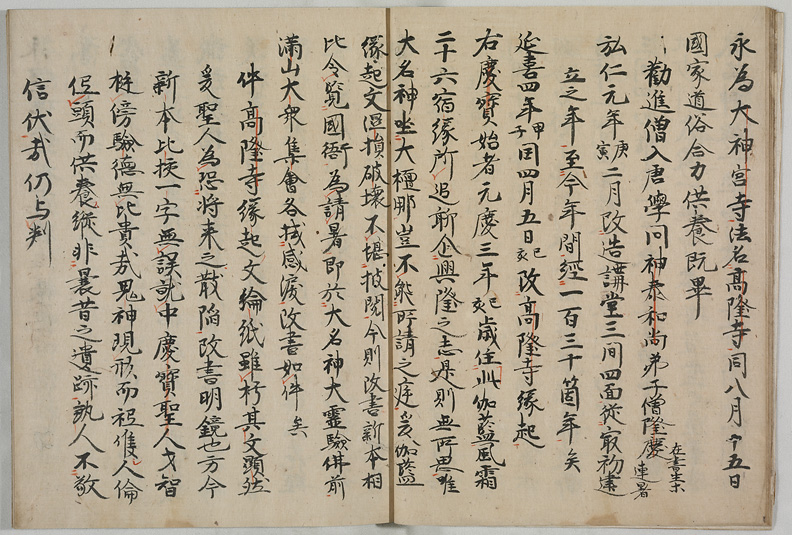 永為大神宮寺法名髙隆寺同八月十五日
國家道俗合力供養既畢
勸進僧入唐學問神泰和尚弟子僧隆慶
弘仁元年庚寅二月改造講堂三間四面從最初建
立之年至今年間經一百三十箇年矣
延喜四年甲子閏四月五日改髙隆寺緣起
右慶寶始者元慶三年己亥歲住此伽藍風霜
二十六宿緣所追聊企興隆之志是則無所思唯
大名神坐大檀那豈不熊所請之庭爰伽藍
緣起文湿損破壊不堪披閲今則改書新本相
比令覧國衙為請署即於大名神大靈驗佛前
滿山大衆集會各拭感淚改書如件矣
件髙隆寺緣起文綸紙雖朽其文顕然
爰聖人為恐將来之散陥改書明鏡也方今
新本比挍一字無誤就中慶寶聖人才智
超傍驗德無比貴哉鬼神現形而袒隻人倫
低頭而供養縱非曩昔之遺跡孰人不敬
信伏哉仍与判